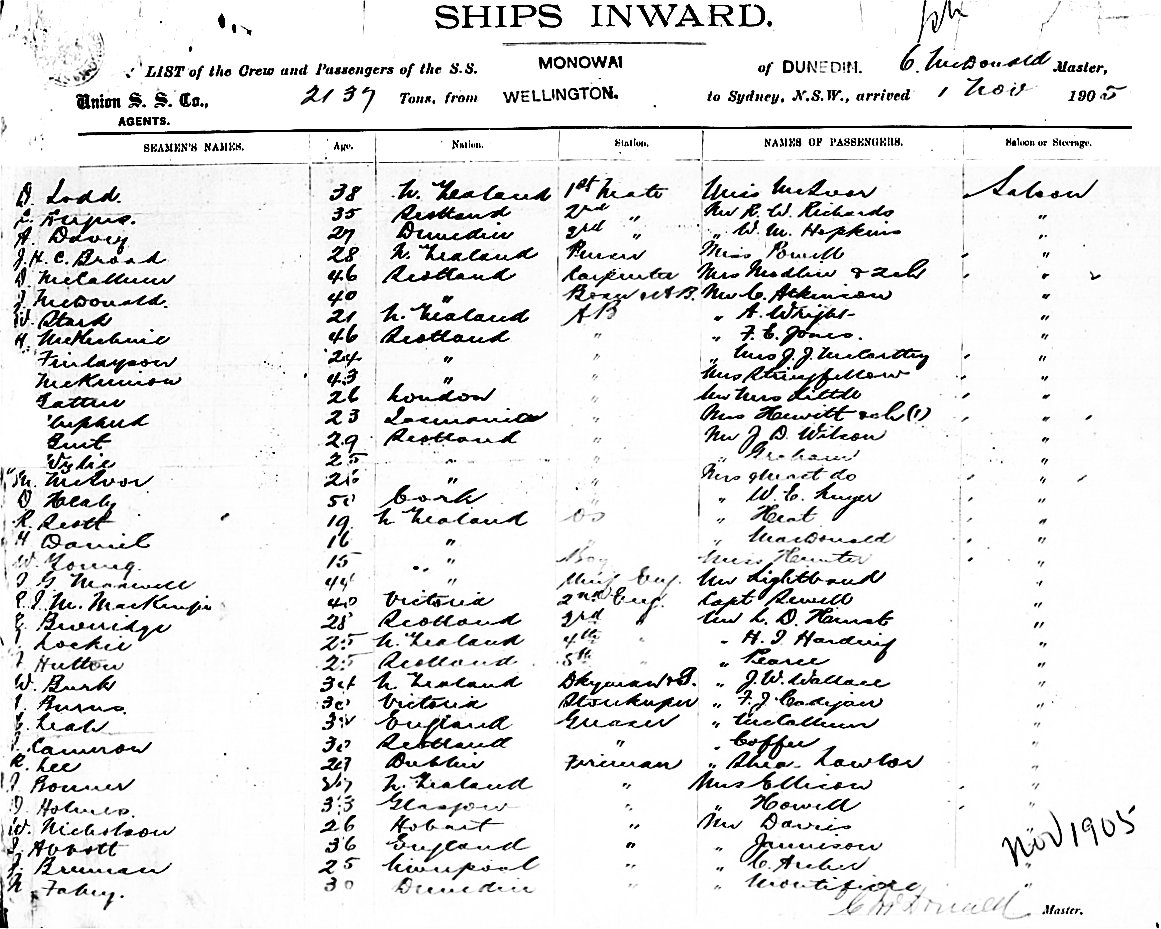 SHIPS INWARD.
LIST of the Crew and Passengers of the S.S. MONOWAI of DUNEDIN. C. McDonald Master,
Union S. S. Co., 2137 Tons, from WELLINGTON. to Sydney, N.S.W., arrived 1 Nov 1905
AGENTS.
SEAMEN'S NAMES. Age. Nation. Station. NAMES OF PASSENGERS. Saloon or Steerage.
38 N. Zealand 1st Mate Miss McIvor Saloon
35 Scotland 2nd " Mr R. W. Richards "
A. Davey 27 Dunedin 3rd " " W. M. Hopkins "
J. H. C. Broad 28 N. Zealand Purser Miss Powell "
D. McCallum 46 Scotland Carpenter Mrs & 2 ch "
J. McDonald. 40 " Mr C. Atkinson "
W. Stark 21 N. Zealand AB " A. Wright "
46 Scotland " " F. C. Jones. "
Finlayson 24 " " " Mrs J. J. McCarthy "
McKinnon 43 " " Mrs Stringfellow "
26 London " Mr Mrs Little "
23 Tasmania " Mrs Hewitt & ch (1) "
29 Scotland " Mr J. B. Wilson "
Wylie 25 " " " Graham "
M. McIvor " " "
D. Healy Cork " " W. C. "
R. Scott 19 N. Zealand OS " "
H Daniel 16 " " " MacDonald "
W. Young. 15 " Boy Miss Hunter "
J G Maxwell " Chief Eng. Mr Lightband "
E. J. M. MacKenzie 40 Victoria 2nd Eng. Capt Sewell "
E. Beveridge 28 Scotland 3rd " Mr L. D. "
J Lockie 25 N. Zealand 4th " " H. J Harding "
J Hutton 25 Scotland 5th " " Pearce "
W. Burk 34 N. Zealand " J. W. Wallace "
J. Burns Victoria Storekeeper " F. J. "
Leah England Greaser " McCallum "
J. Cameron Scotland " " "
R. Lee 27 Dublin Fireman " Lawlor "
J Bonner N. Zealand " Mrs Ellison "
J. Holmes. 33 Glasgow " " Howell "
W. Nicholson 26 Hobart " Mr Davis "
J. Abbott 36 England " " Jamieson "
J. Brennan 25 Liverpool " " C. Archer "
N. Fahey. 30 Dunedin " " Montifiore
Nov 1905
C McDonald Master.